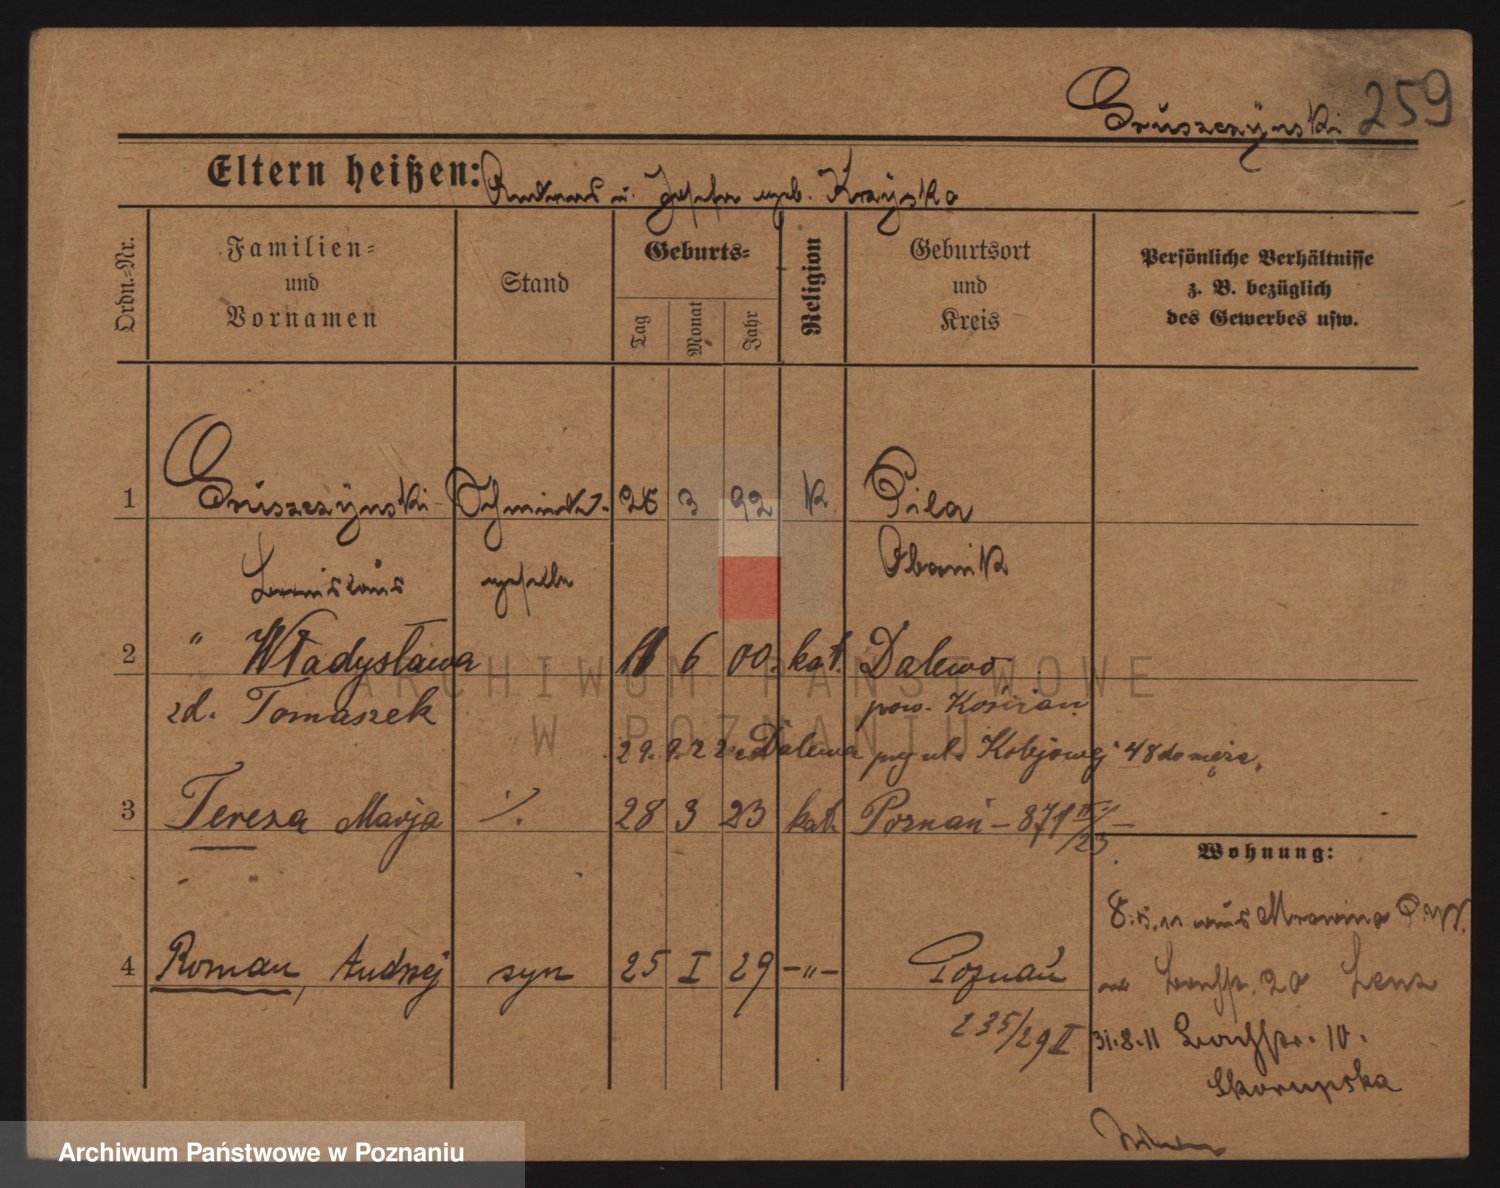 Gruszczynski 259
Eltern heißen: Andreas u. Josefa geb. Krzyska
Ordn.=Nr.
Familien=
und
Vornamen
Stand
Geburts=
Tag
Monat
Jahr
Religion
Geburtsort
und
Kreis
Persönliche Verhältnisse
z. B. bezüglich
des Gewerbes usw.
1 Gruszczynski Schmiede- 26 3 92 K Pila
geselle Obornik
2 " Władysława 11 6 00. kat. Dalewo
zd. Tomaszek pow. Kościan
29.9.22 z Dalewa przy ul. Kolejowej 48 do męża.
3 Teresa Marja ·/. 28 3 23 kat. Poznań – 871 IV/23
Wohnung:
8.5.11 aus Mrowino
4 Roman, Andrzej syn 25 I 29 –"– Poznań
20 Lenz
235/29 II
31.8.11 10.
Skorupska
ARCHIWUM PAŃSTWOWE
W POZNANIU
Archiwum Państwowe w Poznaniu